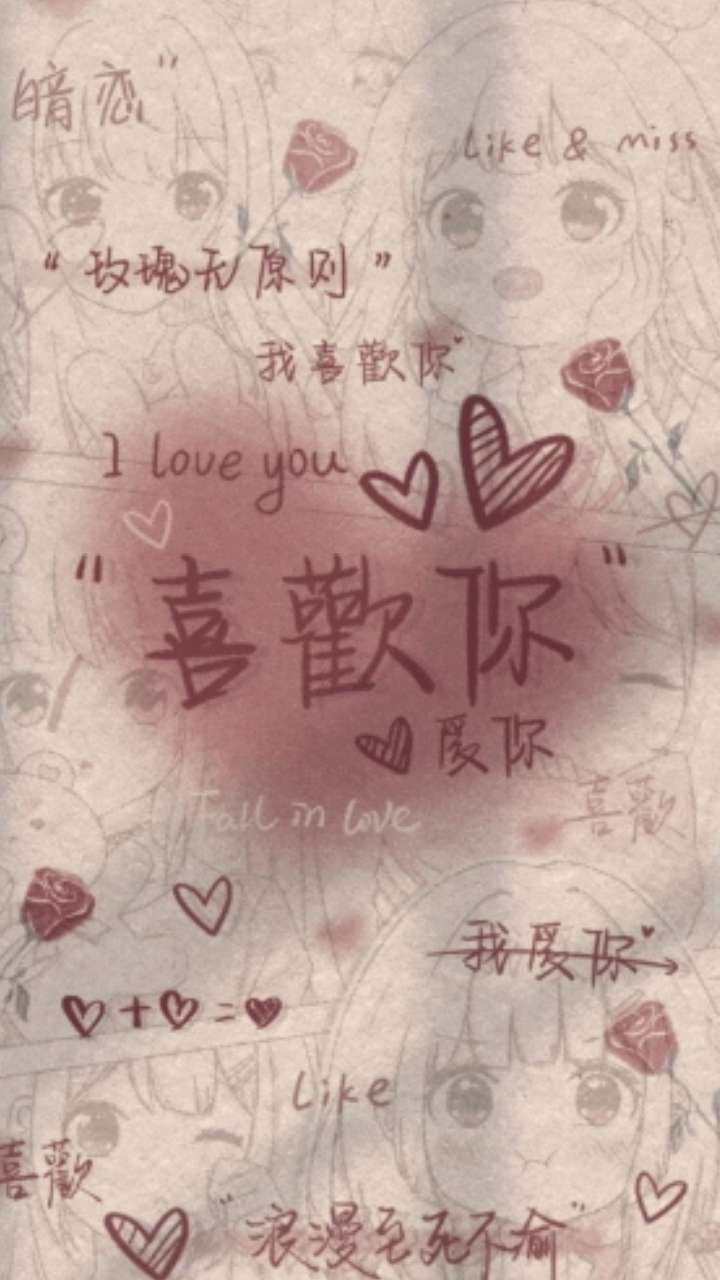 暗恋"
Like & miss
"玫瑰无原则"
我喜歡你
I love you
"喜歡你"
爱你
Fall in love
喜歡
我爱你
+ =
Like
喜歡
"浪漫至死不渝"